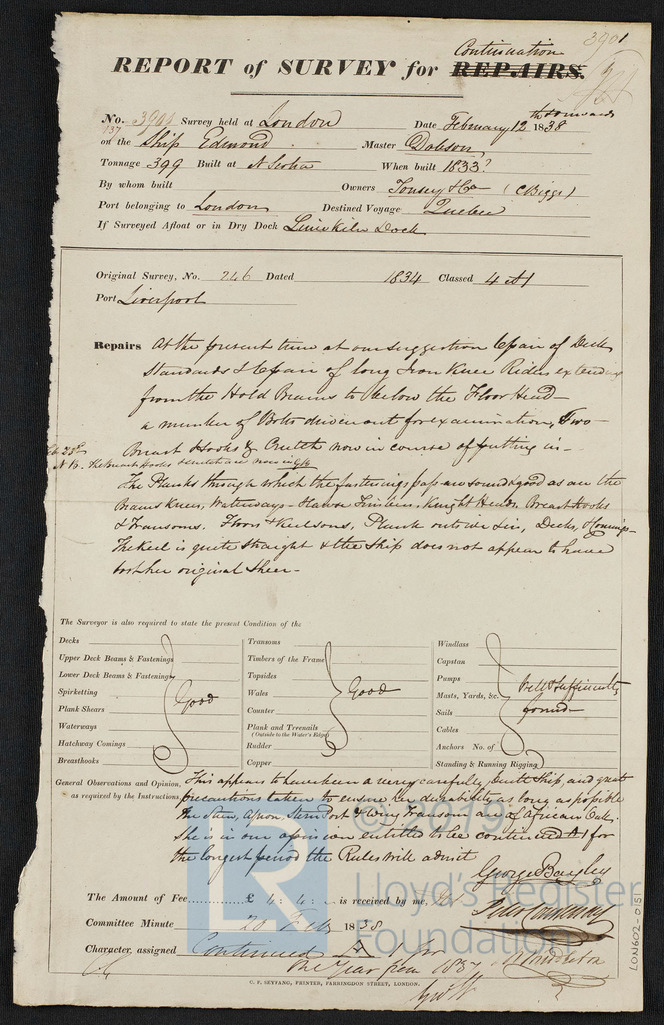 3901
Continuation
REPORT of SURVEY for REPAIRS.
No. 3901 Survey held at London Date February 12th & onwards 1838
137
on the Ship Edmond Master Dobson
Tonnage 399 Built at N Scotia When built 1833?
By whom built Owners & Co (C Biggs)
Port belonging to London Destined Voyage Quebec
If Surveyed Afloat or in Dry Dock Limekiln Dock
Original Survey, No. 246 Dated 1834 Classed 4 A1
Port Liverpool
Repairs At the present time at our suggestion 6 pair of Deck
Standards & 6 pair of long Iron Knee Riders extending
from the Hold Beams to below the Floor Head—
a number of Bolts driven out for examination, Two
Breast Hooks & Crutch now in course of putting in—
Feb 23rd
N B. The Breast Hooks & Crutch are now in
The Planks through which the fastenings pass are sound & good as are the
Beams Knees, Waterways— Hawse Timbers, Knight Heads, Breast hooks
& Transoms. Floors & Keelsons, Plank outside & in, Decks, & Comings—
The keel is quite straight & the Ship does not appear to have
lost her original Sheer—
The Surveyor is also required to state the present Condition of the
Decks
Upper Deck Beams & Fastenings
Lower Deck Beams & Fastenings
Spirketting
Plank Shears
Waterways
Hatchway Comings
Breasthooks
Good
Transoms
Timbers of the Frame
Topsides
Wales
Counter
Plank and Treenails
(Outside to the Water's Edge)
Rudder
Copper
Good
Windlass
Capstan
Pumps
Masts, Yards, &c.
Sails
Cables
Anchors No. of
Standing & Running Rigging
Well & Sufficiently
found—
General Observations and Opinion, This appears to have been a very carefully built Ship, and great
as required by the Instructions, precautions taken to ensure her durability as long as possible
the Stem, Apron, Stern Post & Wing Transom are of African Oak.
She is in our opinion entitled to be continued A1 for
the longest period the Rules will admit
George Bayley
The Amount of Fee £ 4: 4: – is received by me,
Peter Courtenay
Committee Minute 20 Feby 1838
Character, assigned Continued A 1 for
One Year from 1837
Middleton
C. F. SEYFANG, PRINTER, FARRINGDON STREET, LONDON.
© 2019
LR
Lloyd's Register
Foundation
LON602-0151